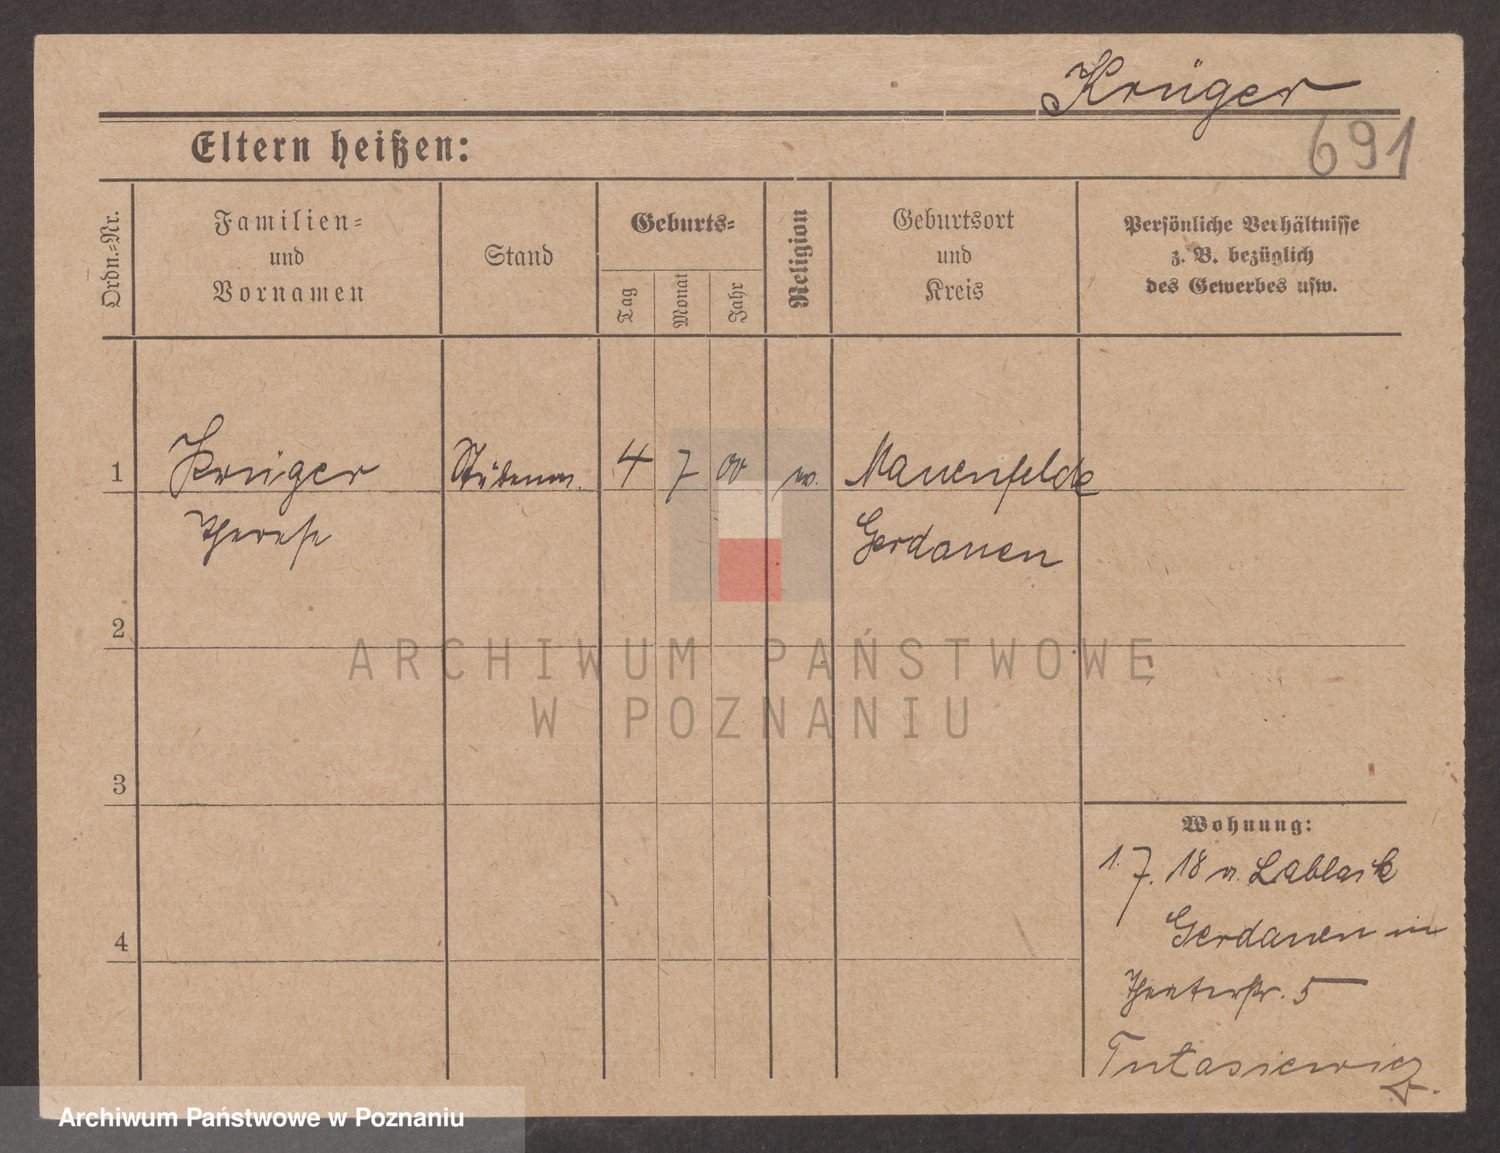 Krüger
691
Eltern heißen:
Ordn.-Nr.
Familien-
und
Vornamen
Stand
Geburts-
Tag
Monat
Jahr
Religion
Geburtsort
und
Kreis
Persönliche Verhältnisse
z. B. bezüglich
des Gewerbes usw.
1 Krüger Stübenm. 4 7 00 ev. Mauenfelde
Therese Gerdauen
2
3
4
Wohnung:
1. 7. 18 v.
Gerdauen in
Theaterstr. 5
Tutasiewicz
ARCHIWUM PAŃSTWOWE
W POZNANIU
Archiwum Państwowe w Poznaniu